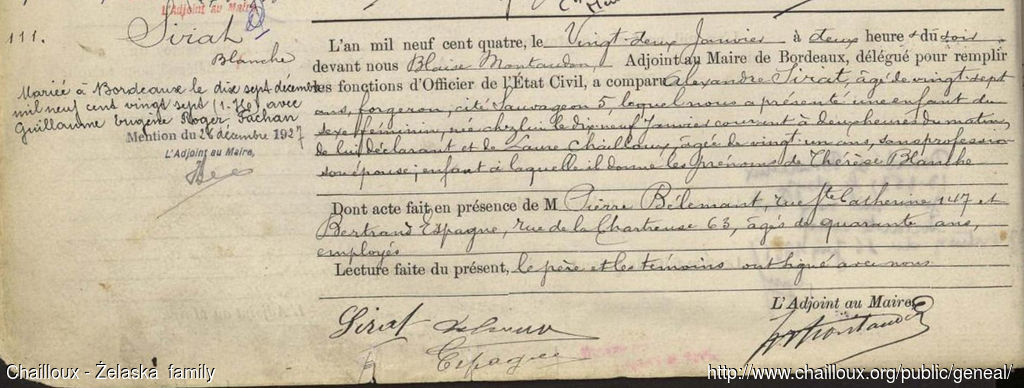 L'Adjoint au Maire,
111.
Sirat
Blanche
Mariée à Bordeaux le dix sept décembre
mil neuf cent vingt sept (1. K.) avec
Guillaume Eugène Roger Fachan
Mention du 26 décembre 1927
L'Adjoint au Maire,
L'an mil neuf cent quatre, le Vingt-deux Janvier à deux heure s du soir
devant nous Blaise Montaudon Adjoint au Maire de Bordeaux, délégué pour remplir
les fonctions d'Officier de l'État Civil, a comparu Alexandre Sirat, âgé de vingt-sept
ans, forgeron, cité Sauvageon 5, lequel nous a présenté une enfant du
sexe féminin, née chez lui le dix neuf Janvier courant à deux heures du matin,
de lui déclarant et de Laure Chailloux, âgée de vingt-un ans, sans profession
son épouse; enfant à laquelle il donne les prénoms de Thérèse Blanche
Dont acte fait en présence de M Pierre Bélemant, rue Ste Catherine 147 et
Bertrand Espagne, rue de la Chartreuse 63, âgés de quarante ans,
employés
Lecture faite du présent, le père et les témoins ont signé avec nous.
L'Adjoint au Maire,
Sirat
Espagne
Chailloux - Żelaska family
http://www.chailloux.org/public/geneal/